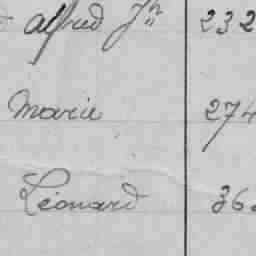 Alfred Jn 232
Marie 274
Léonard 36